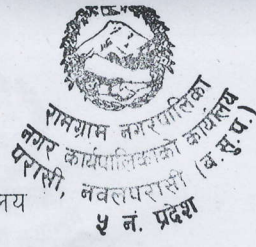 रामग्राम नगरपालिका
नगर कार्यपालिकाको कार्यालय
परासी, नवलपरासी (ब.सु.प.)
५ नं. प्रदेश
लय